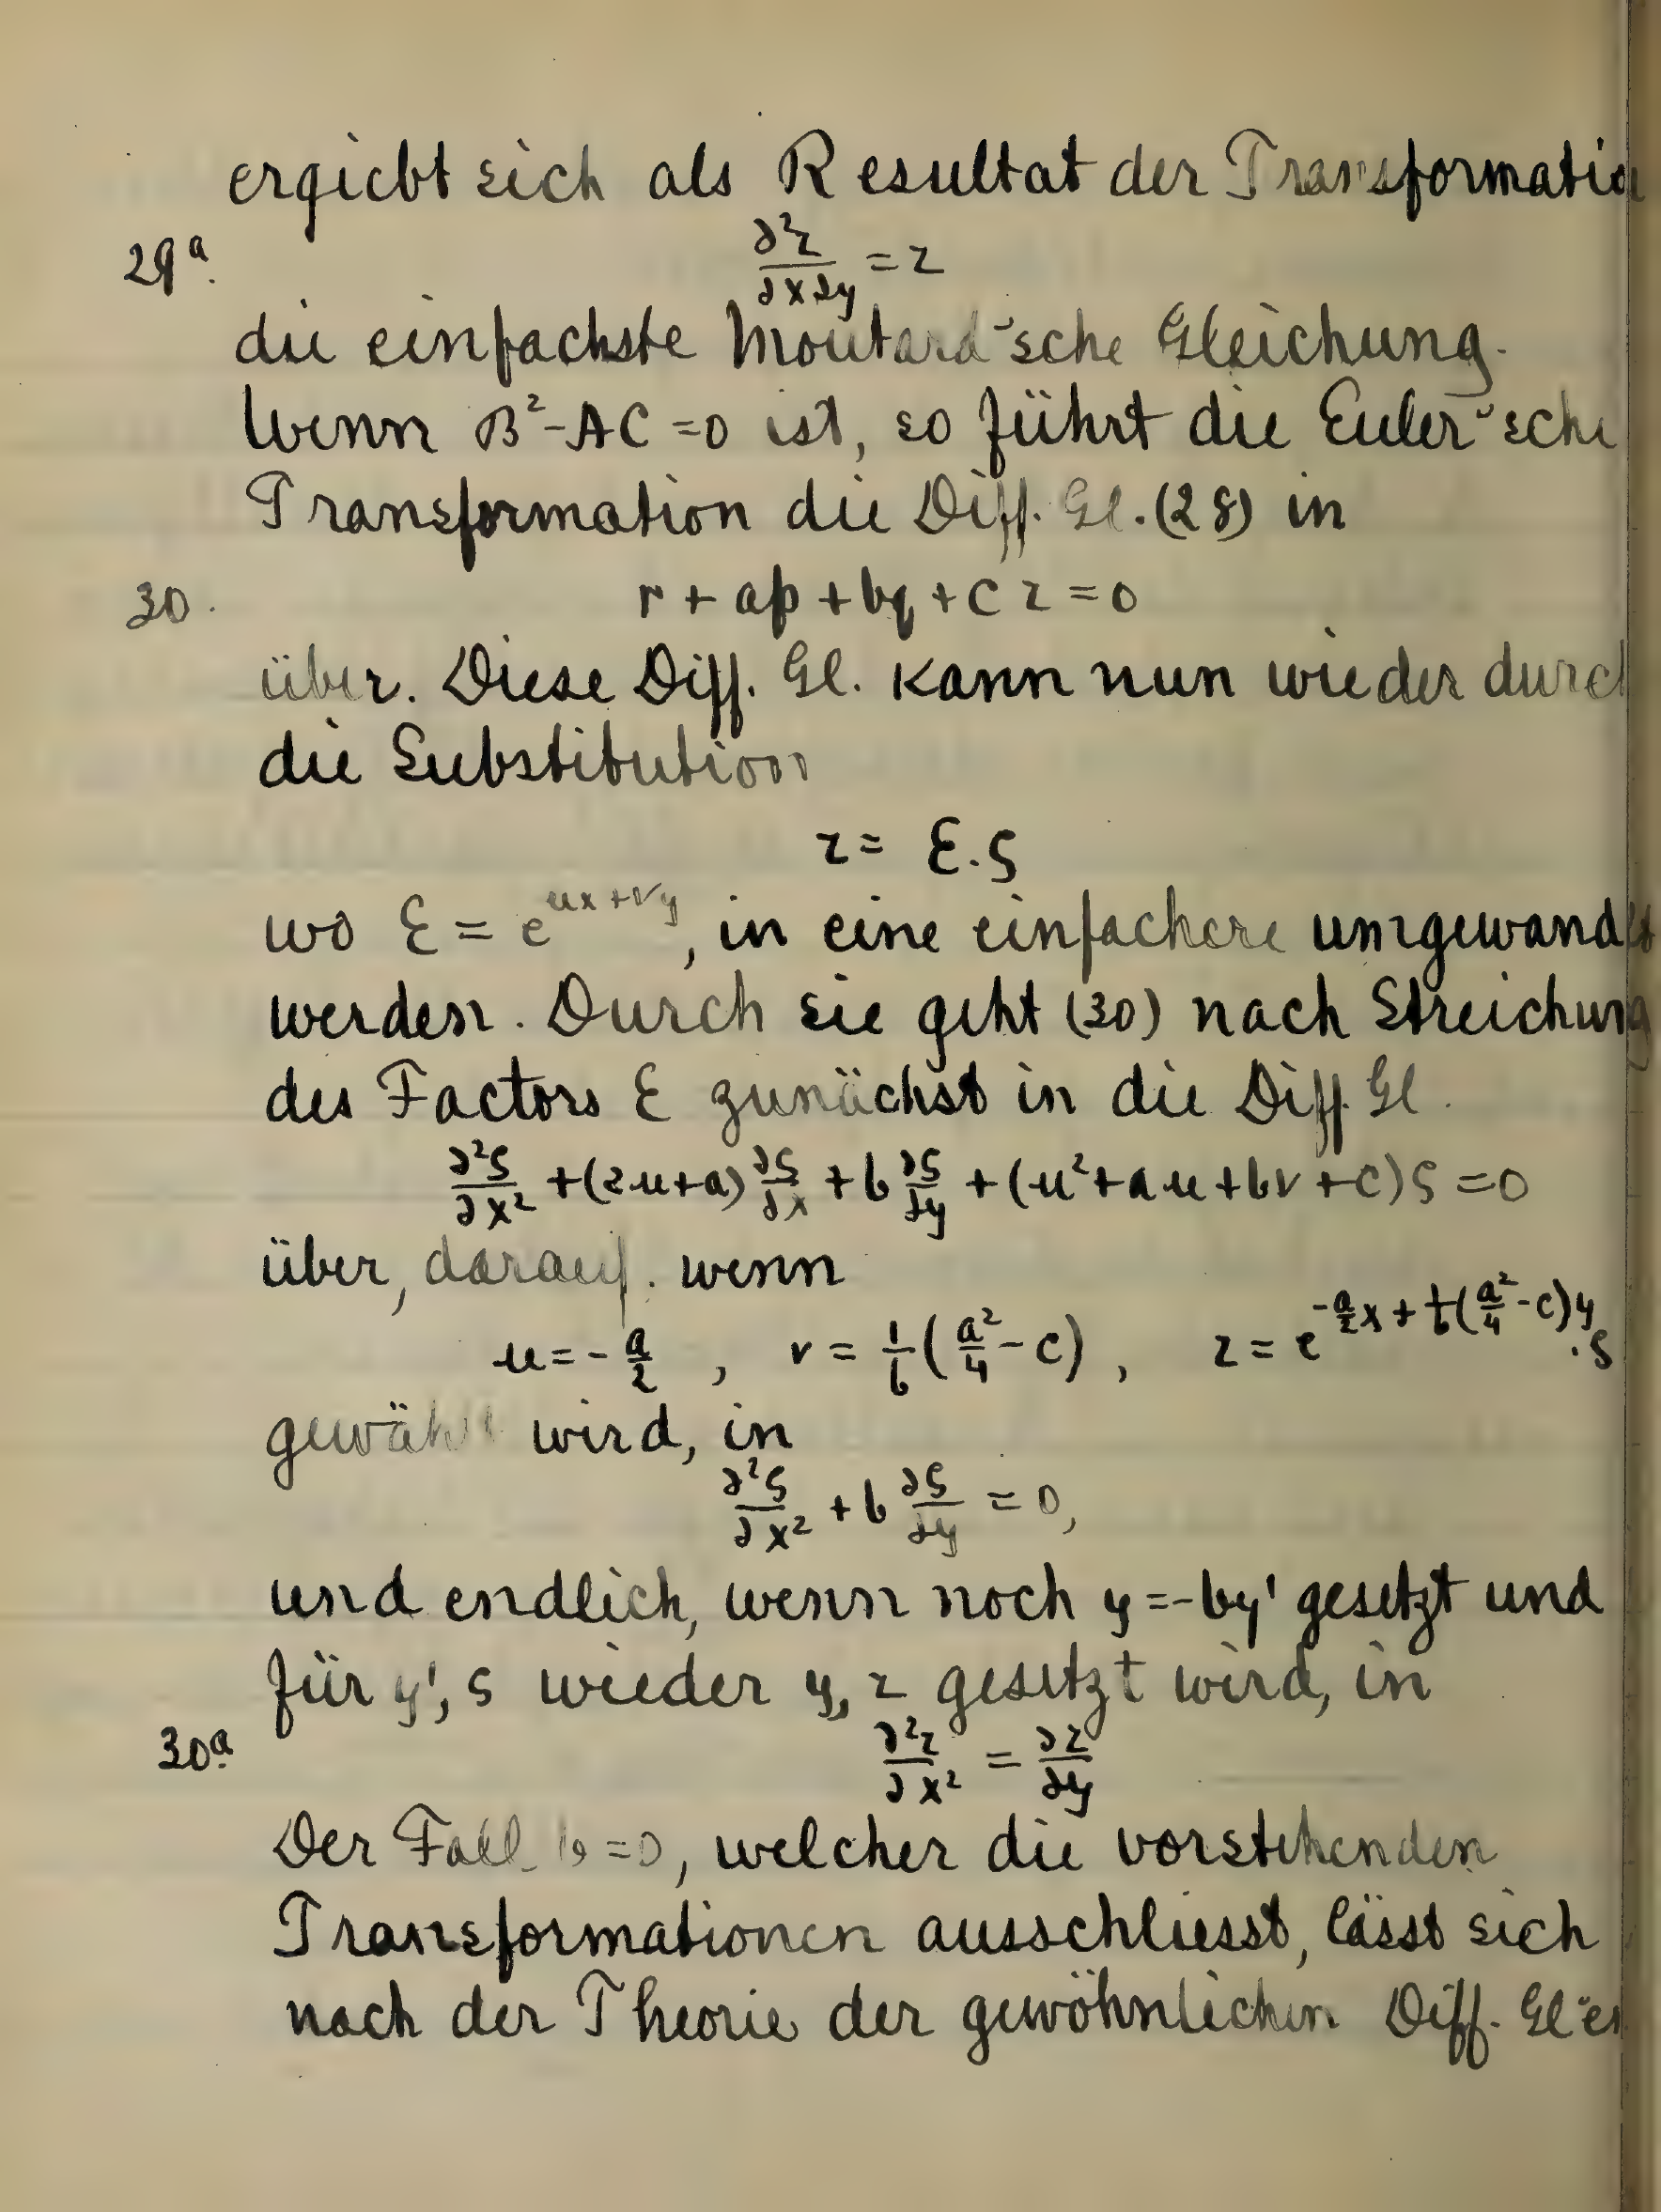 ergiebt sich als Resultat der Transformatio
29a. ∂²z/∂x∂y = z
die einfachste Moutard'sche Gleichung.
Wenn B²-AC=0 ist, so führt die Euler'sche
Transformation die Diff. Gl. (28) in
30. r + ap + bq + cz = 0
über. Diese Diff. Gl. kann nun wieder durch
die Substitution
z = ℰ.ζ
wo ℰ = e^{ux+vy}, in eine einfachere umgewandelt
werden. Durch sie geht (30) nach Streichung
des Factors ℰ zunächst in die Diff. Gl.
∂²ζ/∂x² + (2u+a) ∂ζ/∂x + b ∂ζ/∂y + (u²+au+bv+c)ζ = 0
über, darauf. wenn
u = -a/2 , v = 1/b (a²/4 - c) , z = e^{-a/2 x + 1/b (a²/4 - c)y} . ζ
gewählt wird, in
∂²ζ/∂x² + b ∂ζ/∂y = 0,
und endlich, wenn noch y = -by' gesetzt und
für y', ζ wieder y, z gesetzt wird, in
30a. ∂²z/∂x² = ∂z/∂y
Der Fall b=0, welcher die vorstehenden
Transformationen ausschliesst, lässt sich
nach der Theorie der gewöhnlichen Diff. Gl'en